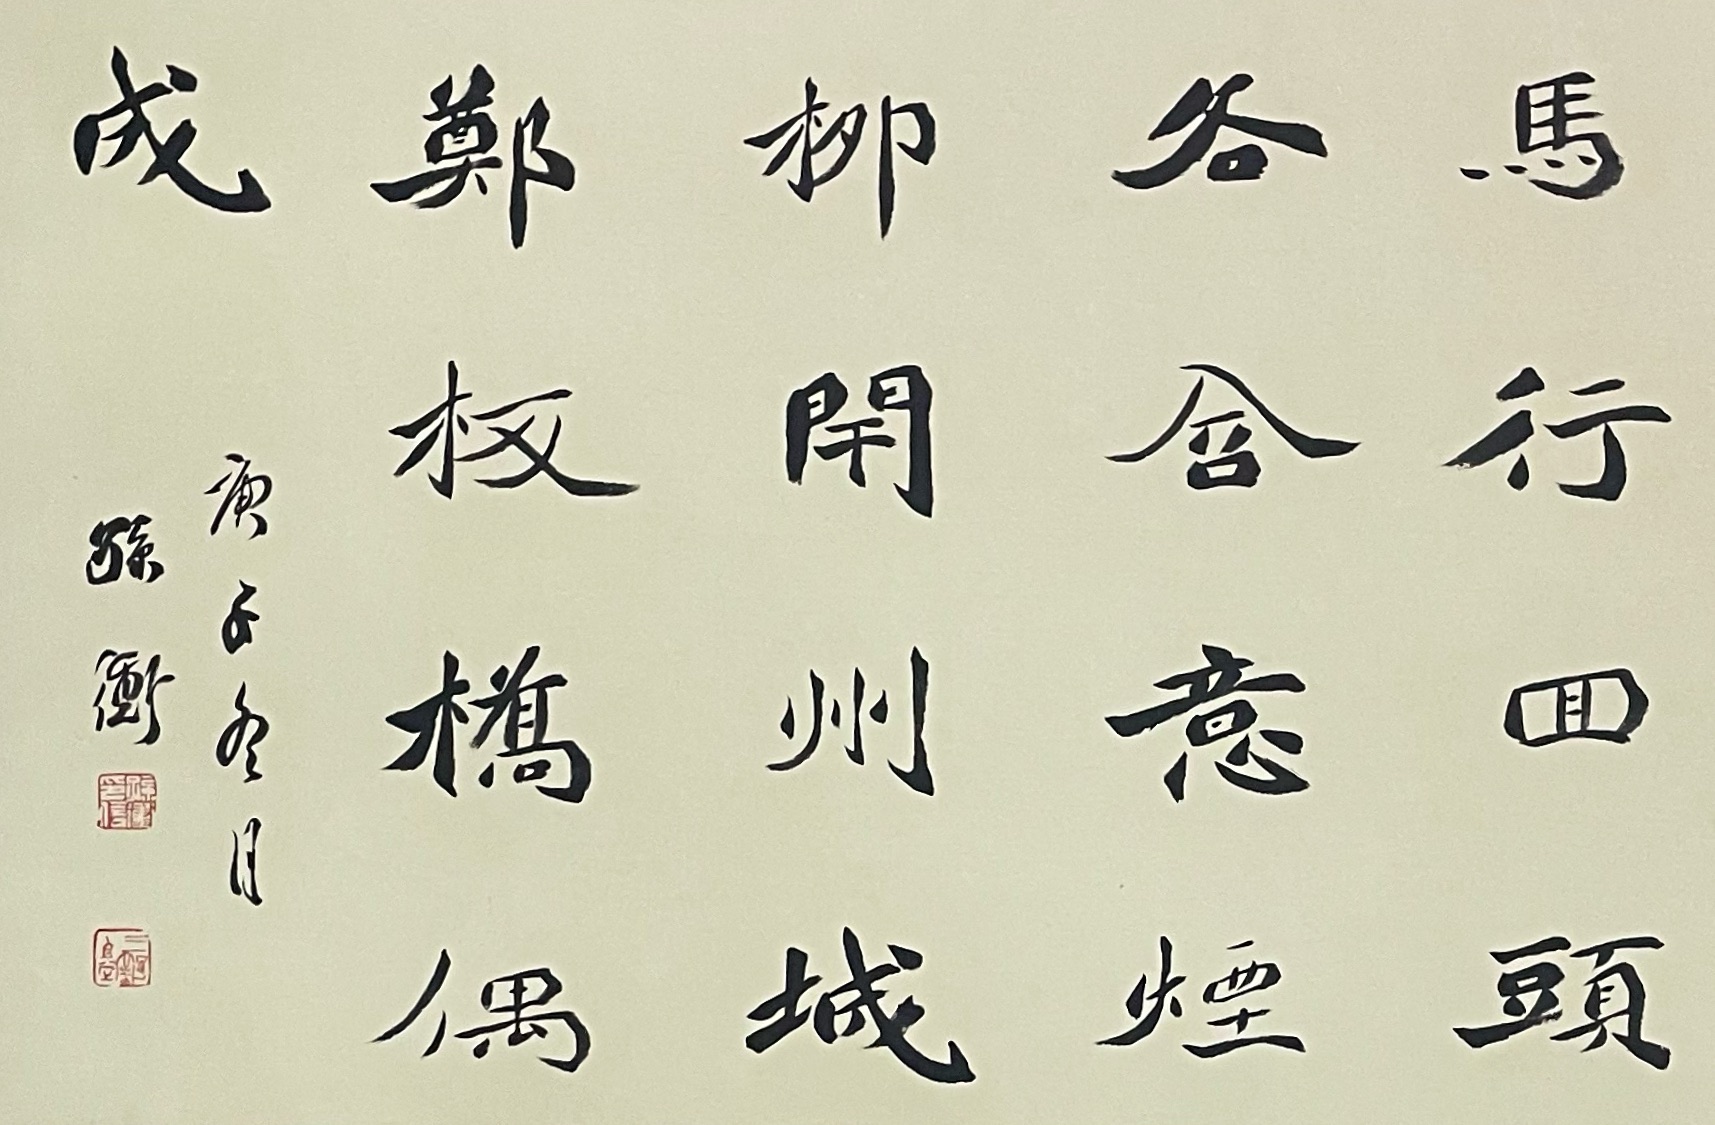 馬行囬頭
各含意煙
柳閑州城
鄭板橋偶
成
庚子冬月
孫衝